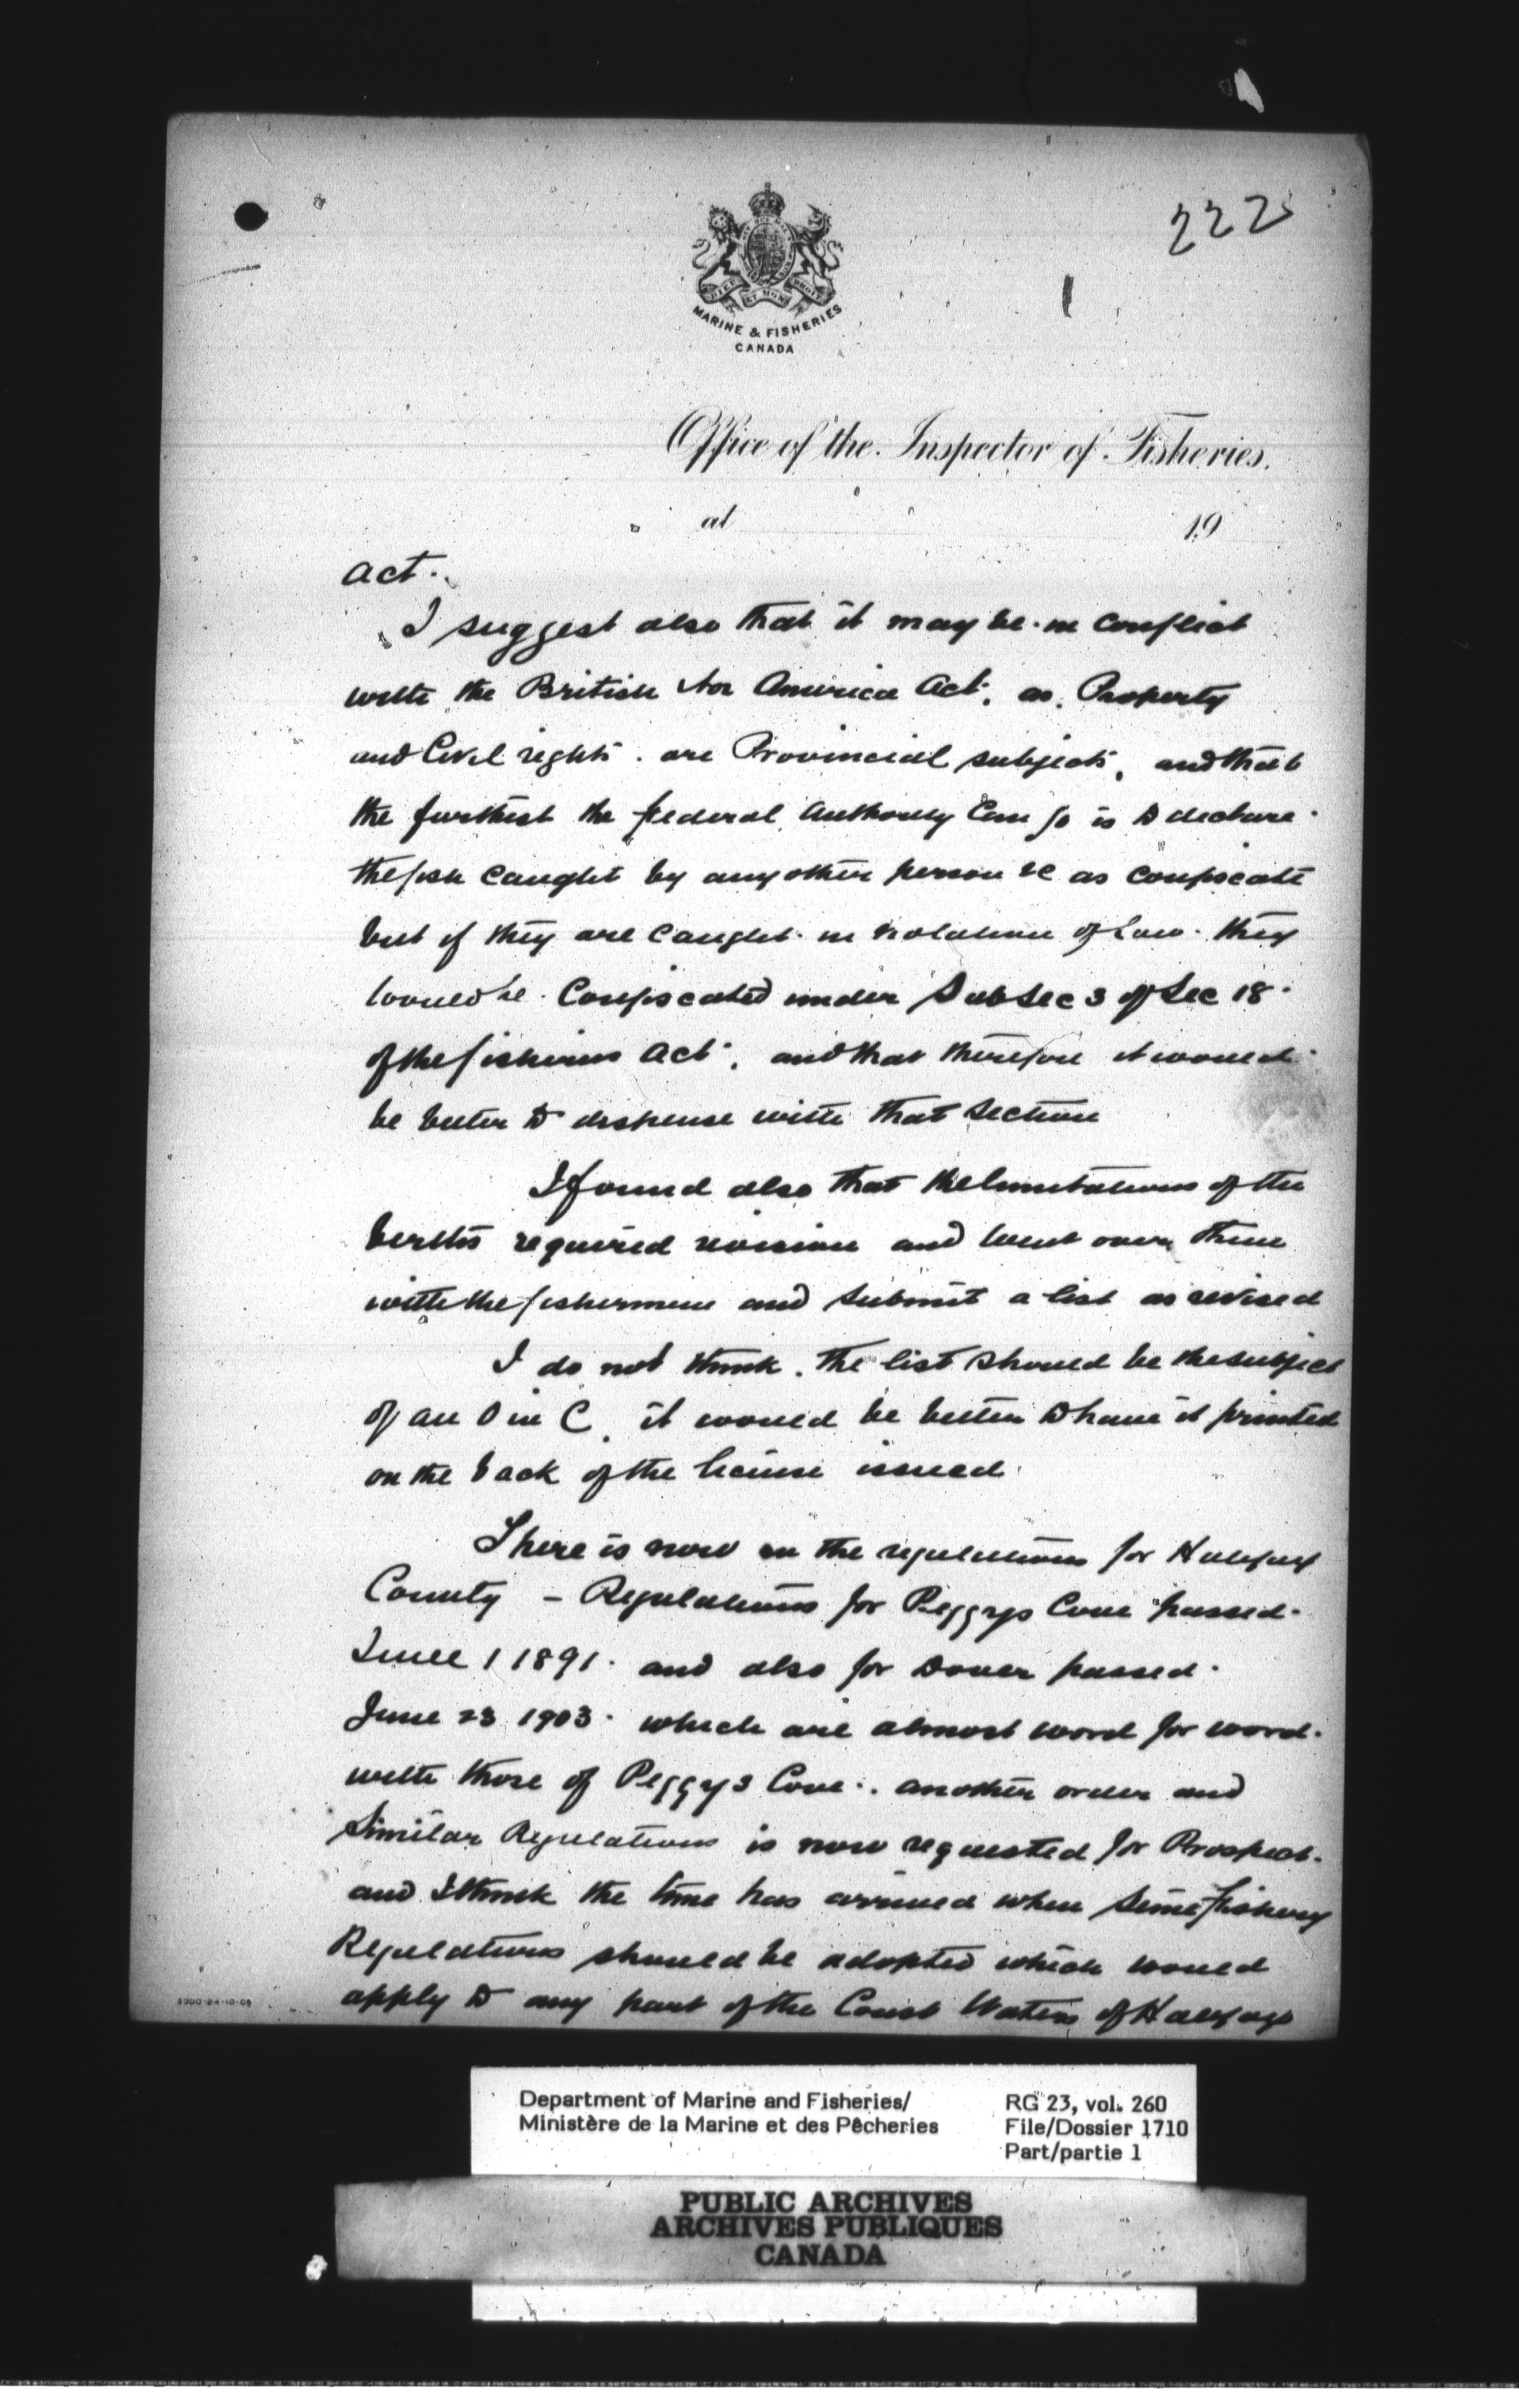 222
MARINE & FISHERIES
CANADA
Office of the Inspector of Fisheries.
at 19
Act.
I suggest also that it may be in conflict
with the British Nor America Act, as Property
and Civil rights are Provincial subjects, and that
the furthest the federal authority can go is to declare
the fish caught by any other person &c as confiscate
but if they are caught in violation of law they
would be confiscated under SubSec 3 of Sec 18
of the fisheries Act, and that therefore it would
be better to dispense with that section
I found also that the limitations of the
berths required revision and went over them
with the fishermen and submit a list as revised
I do not think the list should be the subject
of an O in C, it would be better to have it printed
on the back of the license issued
There is now in the regulations for Halifax
County - Regulations for Peggys Cove passed
June 1 1891 and also for Dover passed
June 23 1903 which are almost word for word
with those of Peggys Cove. another order and
Similar Regulations is now requested for Prospect.
and I think the time has arrived when Seine fishery
Regulations should be adopted which would
apply to any part of the Coast Waters of Halifax
5000-24-10-08
Department of Marine and Fisheries/
Ministère de la Marine et des Pêcheries
RG 23, vol. 260
File/Dossier 1710
Part/partie 1
PUBLIC ARCHIVES
ARCHIVES PUBLIQUES
CANADA